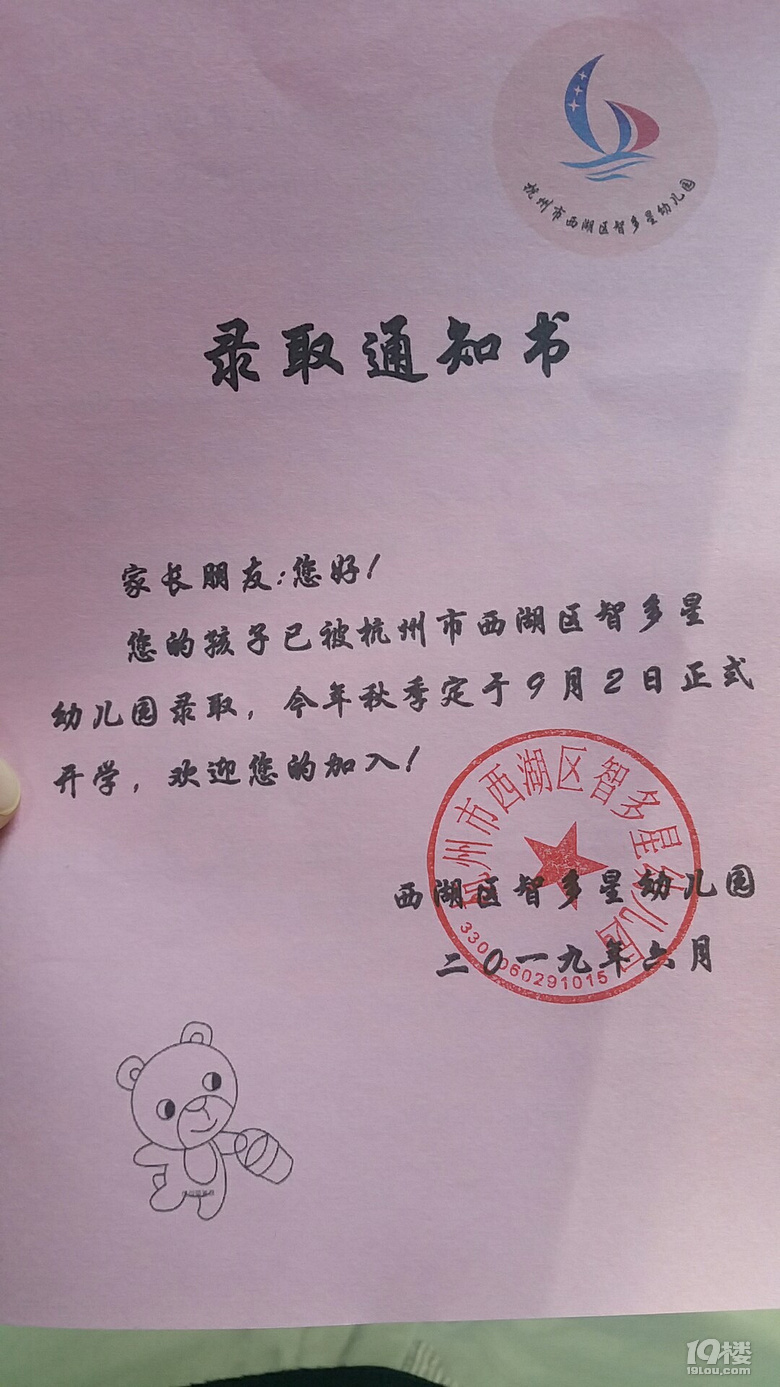 杭州市西湖区智多星幼儿园
录取通知书
家长朋友:您好!
您的孩子已被杭州市西湖区智多星
幼儿园录取，今年秋季定于9月2日正式
开学，欢迎您的加入!
杭州市西湖区智多星幼儿园
西湖区智多星幼儿园
二0一九年六月
19楼
19lou.com